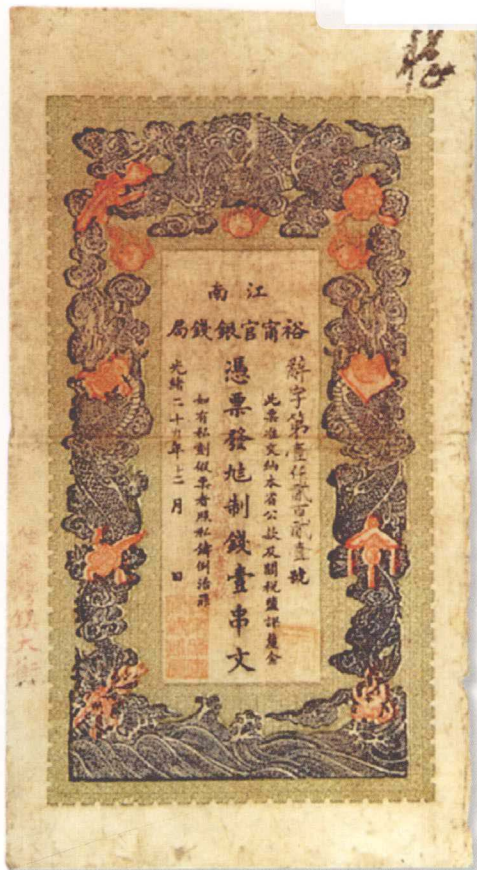 江南
裕甯官銀錢局
辭字第壹仟貳百貳壹號
此票准交納本省公款及關稅鹽課釐金
憑票發足制錢壹串文
如有私刻假票者照私鑄例治罪
光緒二十九年十二月 日